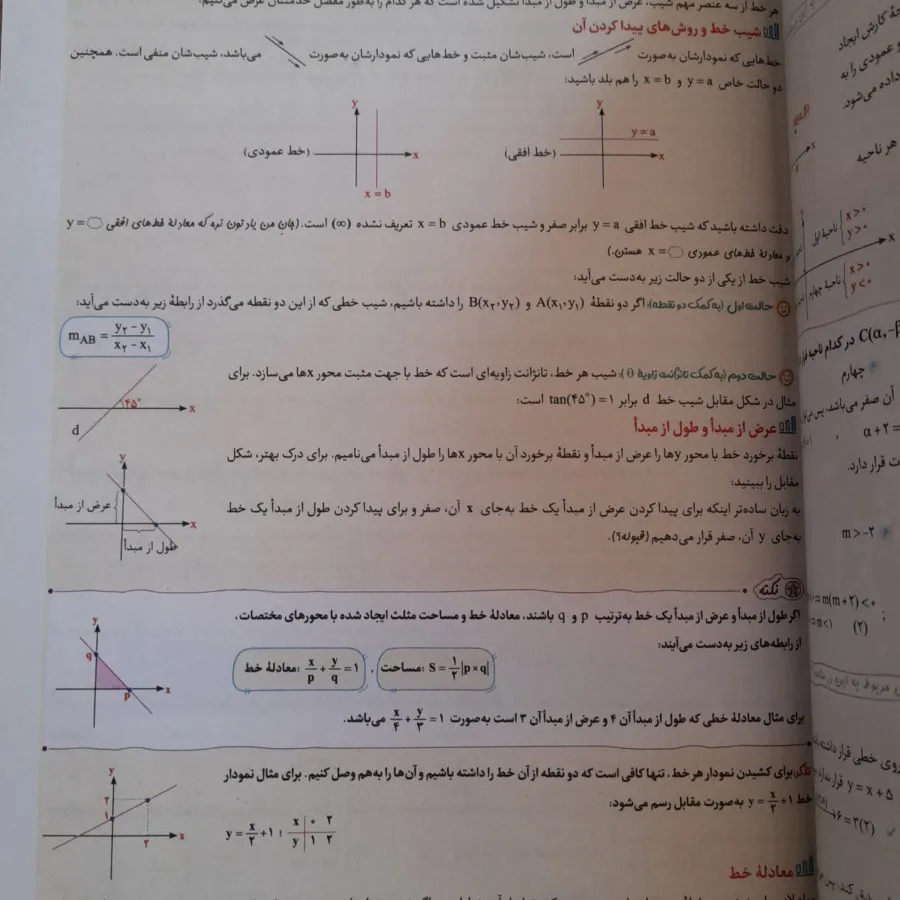 هر خط از سه عنصر مهم شیب، عرض از مبدأ و طول از مبدأ تشکیل شده است که هر کدام را به‌طور مفصل خدمتتان عرض می‌کنیم.
شیب خط و روش‌های پیدا کردن آن
خط‌هایی که نمودارشان به‌صورت است، شیب‌شان مثبت و خط‌هایی که نمودارشان به‌صورت می‌باشد، شیب‌شان منفی است. همچنین
دو حالت خاص y = a و x = b را هم بلد باشید:
y
y = a
x
(خط افقی)
y
x
(خط عمودی)
x = b
دقت داشته باشید که شیب خط افقی y = a برابر صفر و شیب خط عمودی x = b تعریف نشده (∞) است. (جان من یادتون نره که معادلهٔ خط‌های افقی y = ◯
و معادلهٔ خط‌های عمودی x = ◯ هستن.)
شیب خط از یکی از دو حالت زیر به‌دست می‌آید:
حالت اول (به کمک دو نقطه): اگر دو نقطهٔ A(x₁,y₁) و B(x₂,y₂) را داشته باشیم، شیب خطی که از این دو نقطه می‌گذرد از رابطهٔ زیر به‌دست می‌آید:
m_AB = (y₂ − y₁)/(x₂ − x₁)
حالت دوم (به کمک تانژانت زاویهٔ θ): شیب هر خط، تانژانت زاویه‌ای است که خط با جهت مثبت محور xها می‌سازد. برای
مثال در شکل مقابل شیب خط d برابر tan(۴۵°) = ۱ است:
۴۵°
x
d
عرض از مبدأ و طول از مبدأ
نقطهٔ برخورد خط با محور yها را عرض از مبدأ و نقطهٔ برخورد آن با محور xها را طول از مبدأ می‌نامیم. برای درک بهتر، شکل
مقابل را ببینید:
به زبان ساده‌تر اینکه برای پیدا کردن عرض از مبدأ یک خط به‌جای x آن، صفر و برای پیدا کردن طول از مبدأ یک خط
به‌جای y آن، صفر قرار می‌دهیم (قبوله؟).
y
عرض از مبدأ
x
طول از مبدأ
نکته
اگر طول از مبدأ و عرض از مبدأ یک خط به‌ترتیب p و q باشند، معادلهٔ خط و مساحت مثلث ایجاد شده با محورهای مختصات،
از رابطه‌های زیر به‌دست می‌آیند:
مساحت: S = ۱/۲ |p×q| , معادلهٔ خط: x/p + y/q = ۱
y
q
p
x
برای مثال معادلهٔ خطی که طول از مبدأ آن ۴ و عرض از مبدأ آن ۳ است به‌صورت x/۴ + y/۳ = ۱ می‌باشد.
تذکر: برای کشیدن نمودار هر خط، تنها کافی است که دو نقطه از آن خط را داشته باشیم و آن‌ها را به‌هم وصل کنیم. برای مثال نمودار
خط y = x/۲ + ۱ به‌صورت مقابل رسم می‌شود:
y = x/۲ + ۱ ;
x ۰ ۲
y ۱ ۲
y
۲
۱
۲
x
معادلهٔ خط
کارش ایجاد
و عمودی را به
داده می‌شود.
هر ناحیه
x
ناحیهٔ اول
x > ۰
y > ۰
x
ناحیهٔ چهارم
x > ۰
y < ۰
در کدام ناحیه
چهارم
آن صفر می‌باشد، پس
α + ۲ =
ت قرار دارد.
m > −۲
m(m + ۲) < ۰
(۲)
مربوط به این
روی خطی قرار داشته
y = x + ۵
+۶ = ۳(۲)